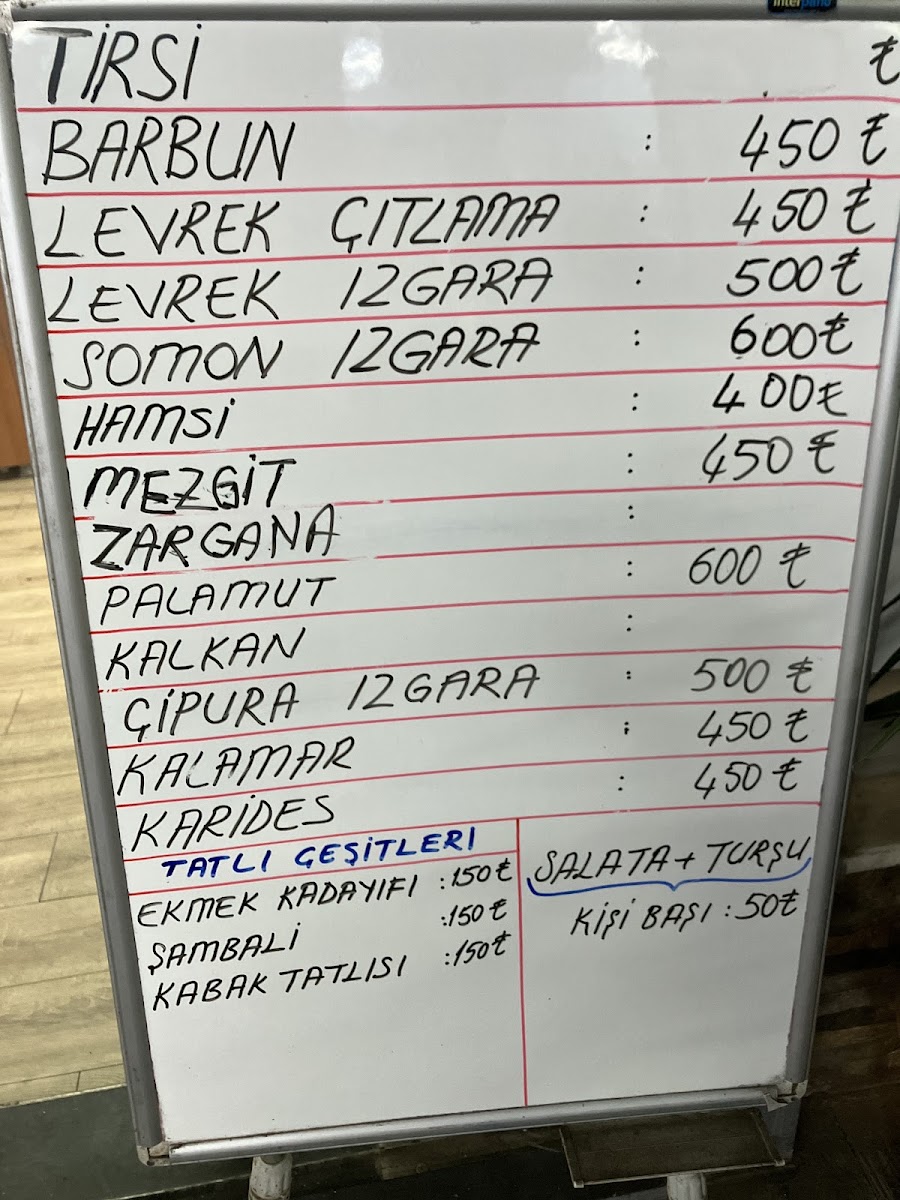 TİRSİ ₺
BARBUN : 450 ₺
LEVREK ÇITLAMA : 450 ₺
LEVREK IZGARA : 500 ₺
SOMON IZGARA : 600 ₺
HAMSİ : 400 ₺
MEZGİT : 450 ₺
ZARGANA :
PALAMUT : 600 ₺
KALKAN :
ÇİPURA IZGARA : 500 ₺
KALAMAR : 450 ₺
KARİDES : 450 ₺
TATLI ÇEŞİTLERİ
EKMEK KADAYIFI : 150 ₺
ŞAMBALİ : 150 ₺
KABAK TATLISI : 150 ₺
SALATA + TURŞU
KİŞİ BAŞI : 50 ₺